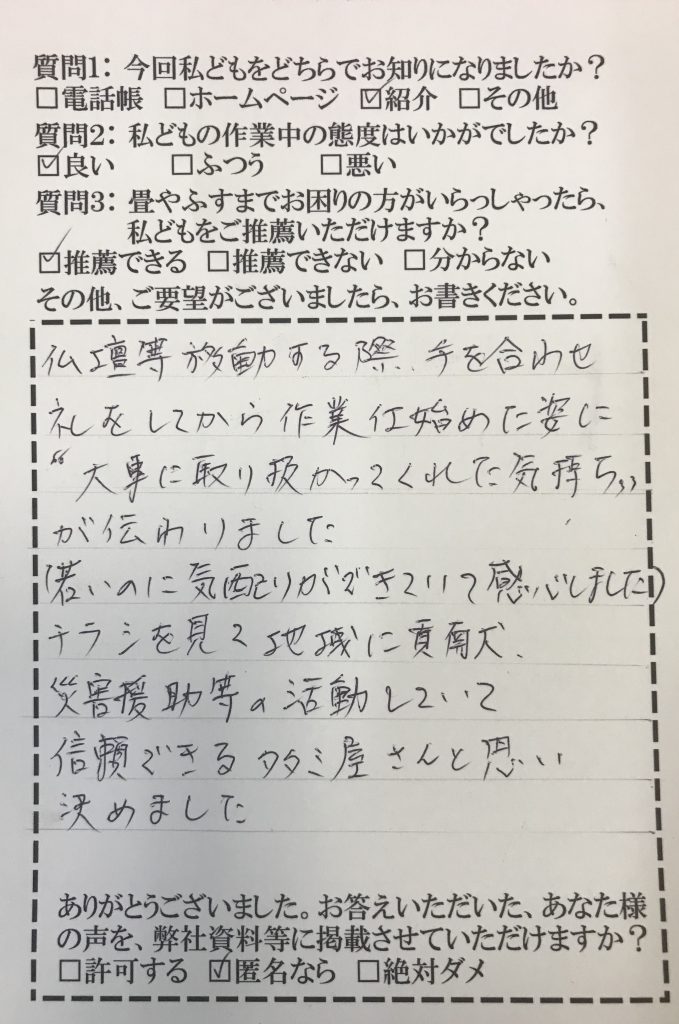 質問1: 今回私どもをどちらでお知りになりましたか?
□電話帳 □ホームページ ☑紹介 □その他
質問2: 私どもの作業中の態度はいかがでしたか?
☑良い □ふつう □悪い
質問3: 畳やふすまでお困りの方がいらっしゃったら、
私どもをご推薦いただけますか?
☑推薦できる □推薦できない □分からない
その他、ご要望がございましたら、お書きください。
仏壇等移動する際、手を合わせ
礼をしてから作業仕始めた姿に
“大事に取り扱かってくれた気持ち”
が伝わりました
(若いのに気配りができていて感心しました)
チラシを見て地域に貢献、
災害援助等の活動していて
信頼できるタタミ屋さんと思い
決めました
ありがとうございました。お答えいただいた、あなた様
の声を、弊社資料等に掲載させていただけますか?
□許可する ☑匿名なら □絶対ダメ